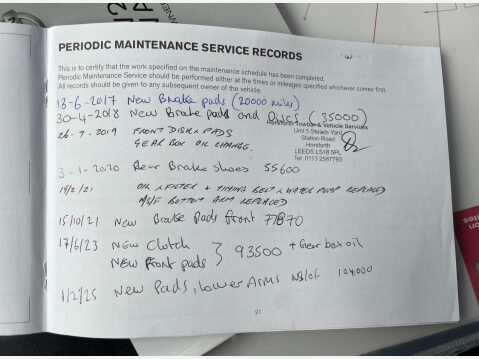 PERIODIC MAINTENANCE SERVICE RECORDS
This is to certify that the work specified on the maintenance schedule has been completed.
Periodic Maintenance Service should be performed either at the times or mileages specified whichever comes first.
All records should be given to any subsequent owner of the vehicle.
13-6-2017 New Brake pads (20000 miles)
30-4-2018 New Brake pads and Discs (35000)
Horsforth Towbar & Vehicle Services
Unit 5 Steads Yard
Station Road
Horsforth
LEEDS LS18 5PL
Tel: 0113 2587793
26-7-2019 FRONT DISK & PADS
GEAR BOX OIL CHANGE.
3-1-2020 Rear Brake Shoes 55600
19/2/21 OIL & FILTER + TIMING BELT & WATER PUMP REPLACED
N/S/F BOTTOM ARM REPLACED
15/10/21 New Brake Pads front 77870
17/6/23 NEW Clutch
NEW Front pads } 93500 + Gear box oil
1/2/25 New Pads, Lower Arms NS/OS 104000
21